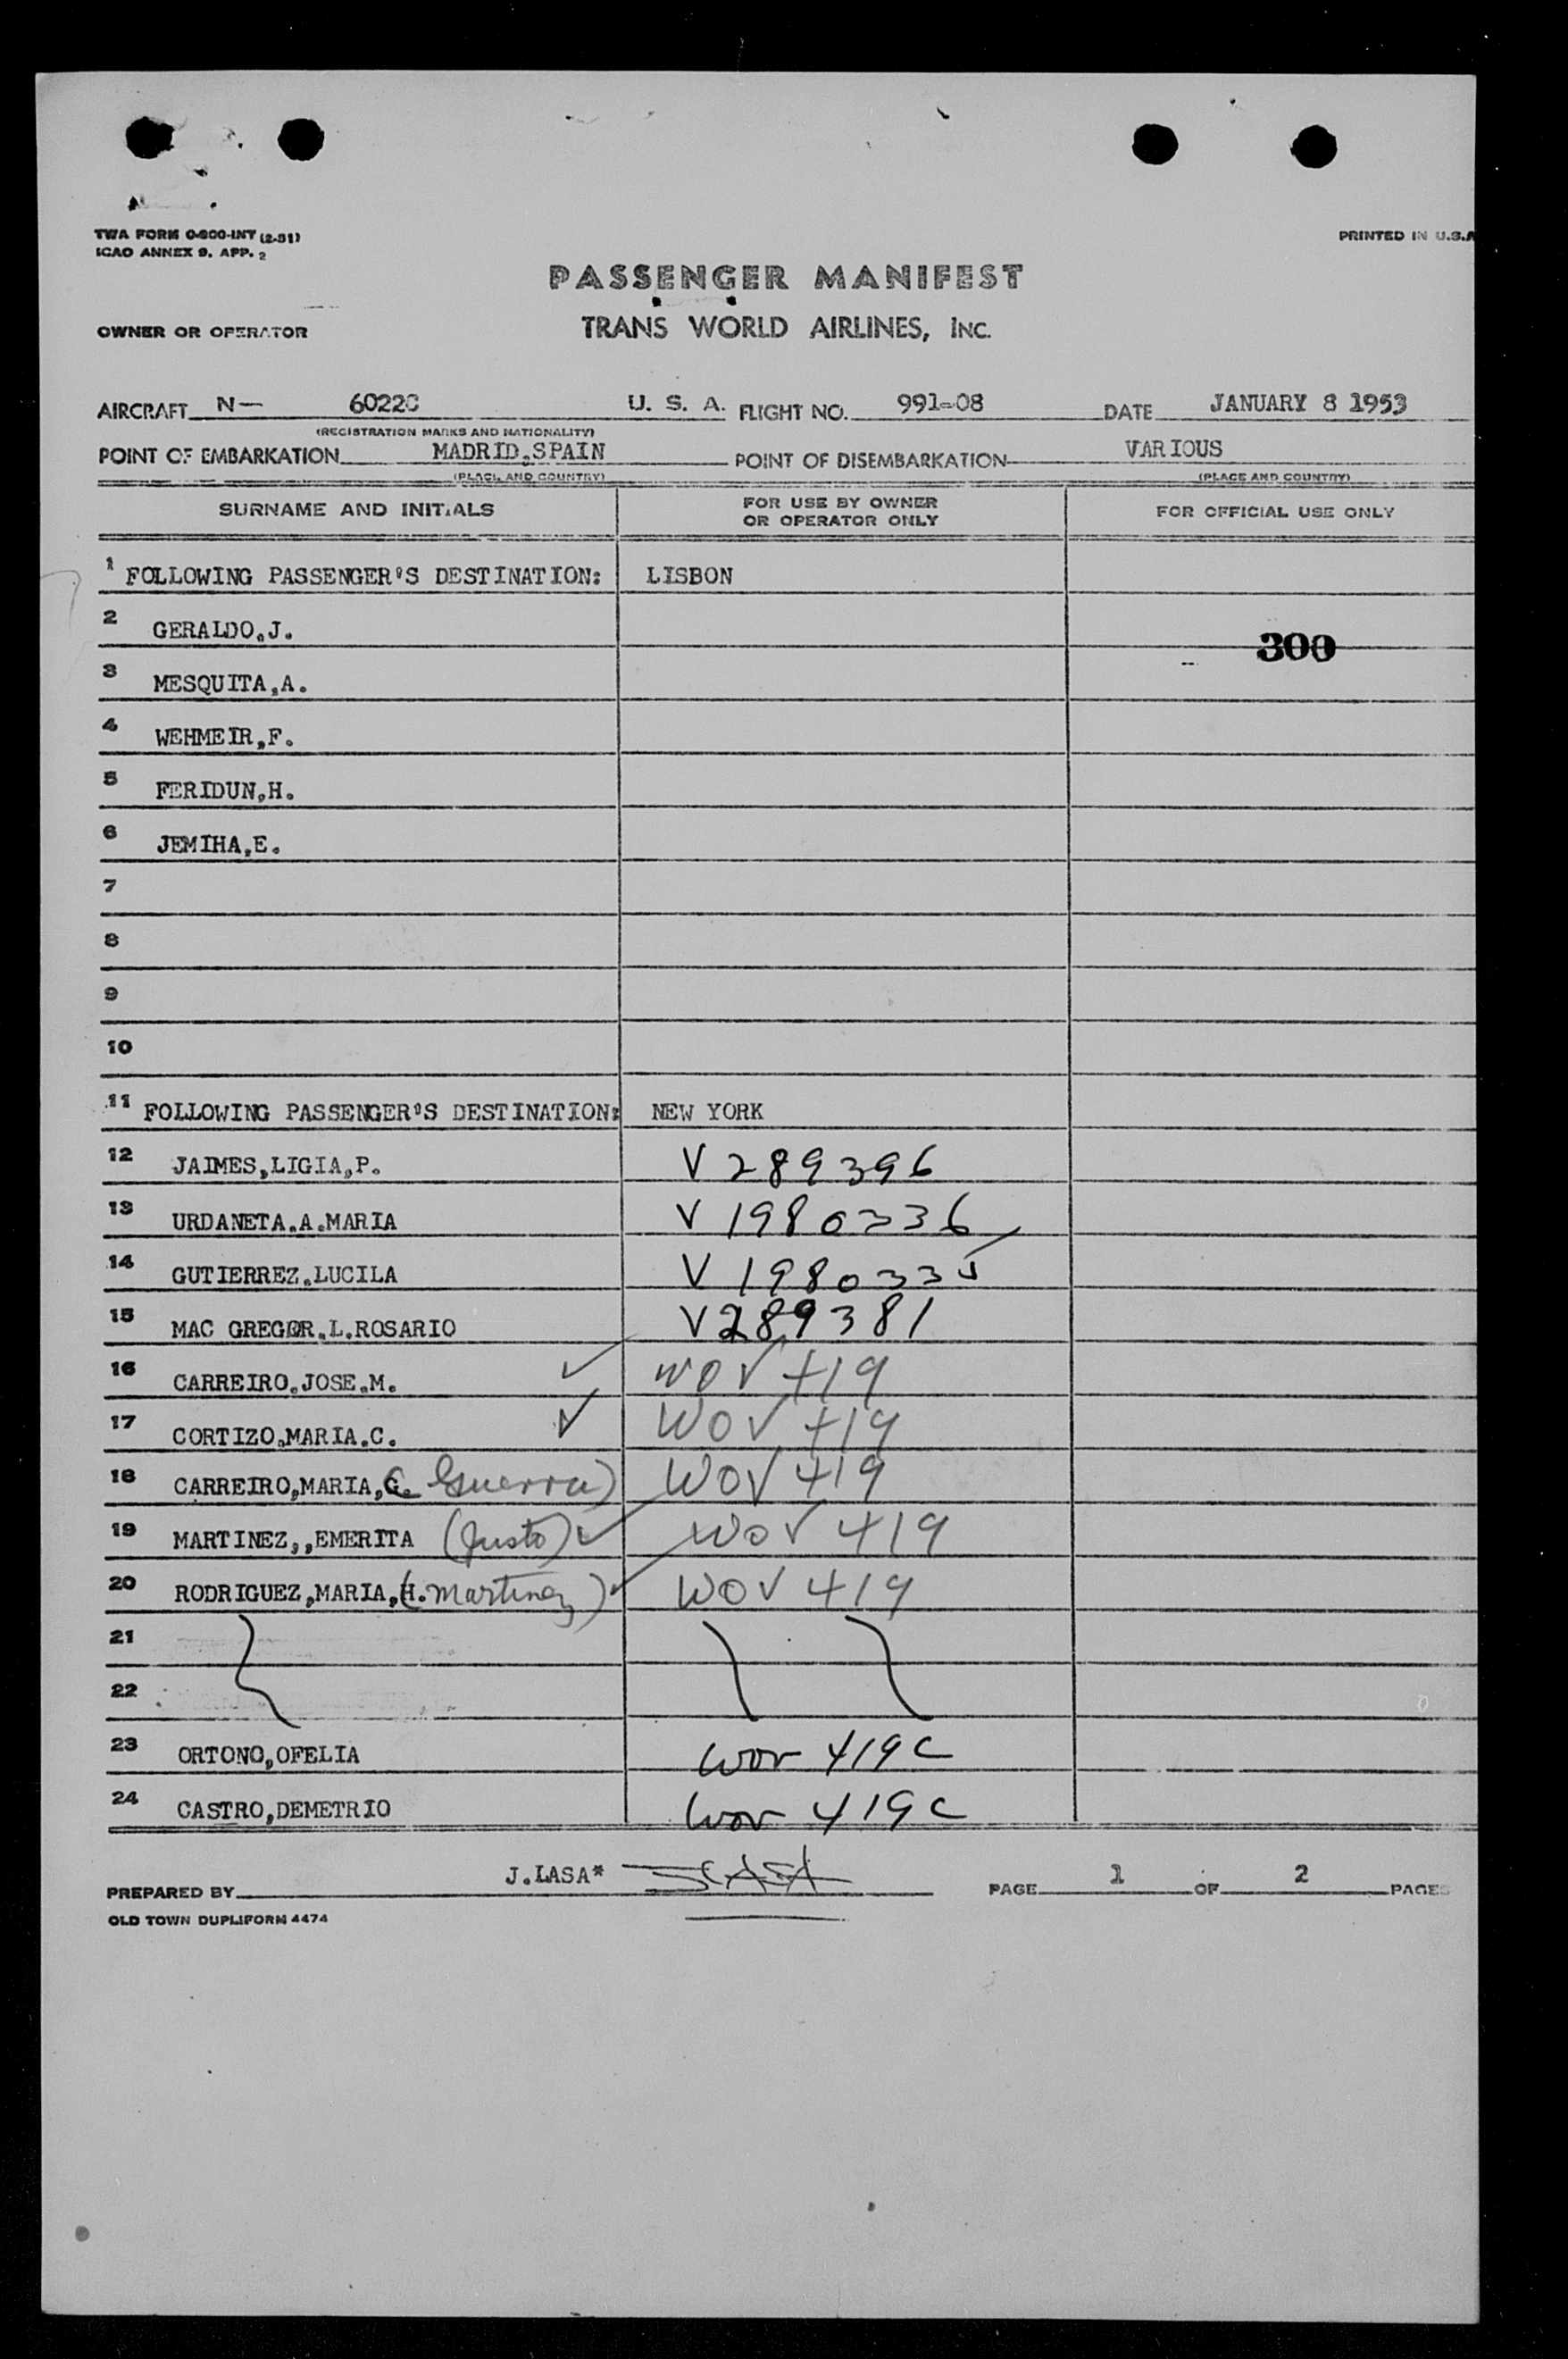 TWA FORM 0-900-INT (2-51)
ICAO ANNEX 9. APP. 2
PRINTED IN U.S.A
PASSENGER MANIFEST
OWNER OR OPERATOR TRANS WORLD AIRLINES, INC.
AIRCRAFT N— 6022C U. S. A. FLIGHT NO. 991-08 DATE JANUARY 8 1953
(REGISTRATION MARKS AND NATIONALITY)
POINT OF EMBARKATION MADRID,SPAIN POINT OF DISEMBARKATION VARIOUS
(PLACE AND COUNTRY) (PLACE AND COUNTRY)
SURNAME AND INITIALS FOR USE BY OWNER OR OPERATOR ONLY FOR OFFICIAL USE ONLY
1 FOLLOWING PASSENGER'S DESTINATION: LISBON
2 GERALDO,J.
300
3 MESQUITA,A.
4 WEHMEIR,F.
5 FERIDUN,H.
6 JEMIHA,E.
7
8
9
10
11 FOLLOWING PASSENGER'S DESTINATION: NEW YORK
12 JAIMES,LIGIA,P. V 289396
13 URDANETA.A.MARIA V 1980336
14 GUTIERREZ.LUCILA V 1980335
15 MAC GREGOR.L.ROSARIO V289381
16 CARREIRO.JOSE.M. ✓ WOV 419
17 CORTIZO.MARIA.C. ✓ WOV 419
18 CARREIRO,MARIA,G. Guerra) WOV 419
19 MARTINEZ,,EMERITA (Justo) ✓ WOV 419
20 RODRIGUEZ,MARIA,H. (Martinez) ✓ WOV 419
21
22
23 ORTONO,OFELIA WOV 419C
24 CASTRO,DEMETRIO WOV 419C
PREPARED BY J.LASA* PAGE 1 OF 2 PAGES
OLD TOWN DUPLIFORM 4474